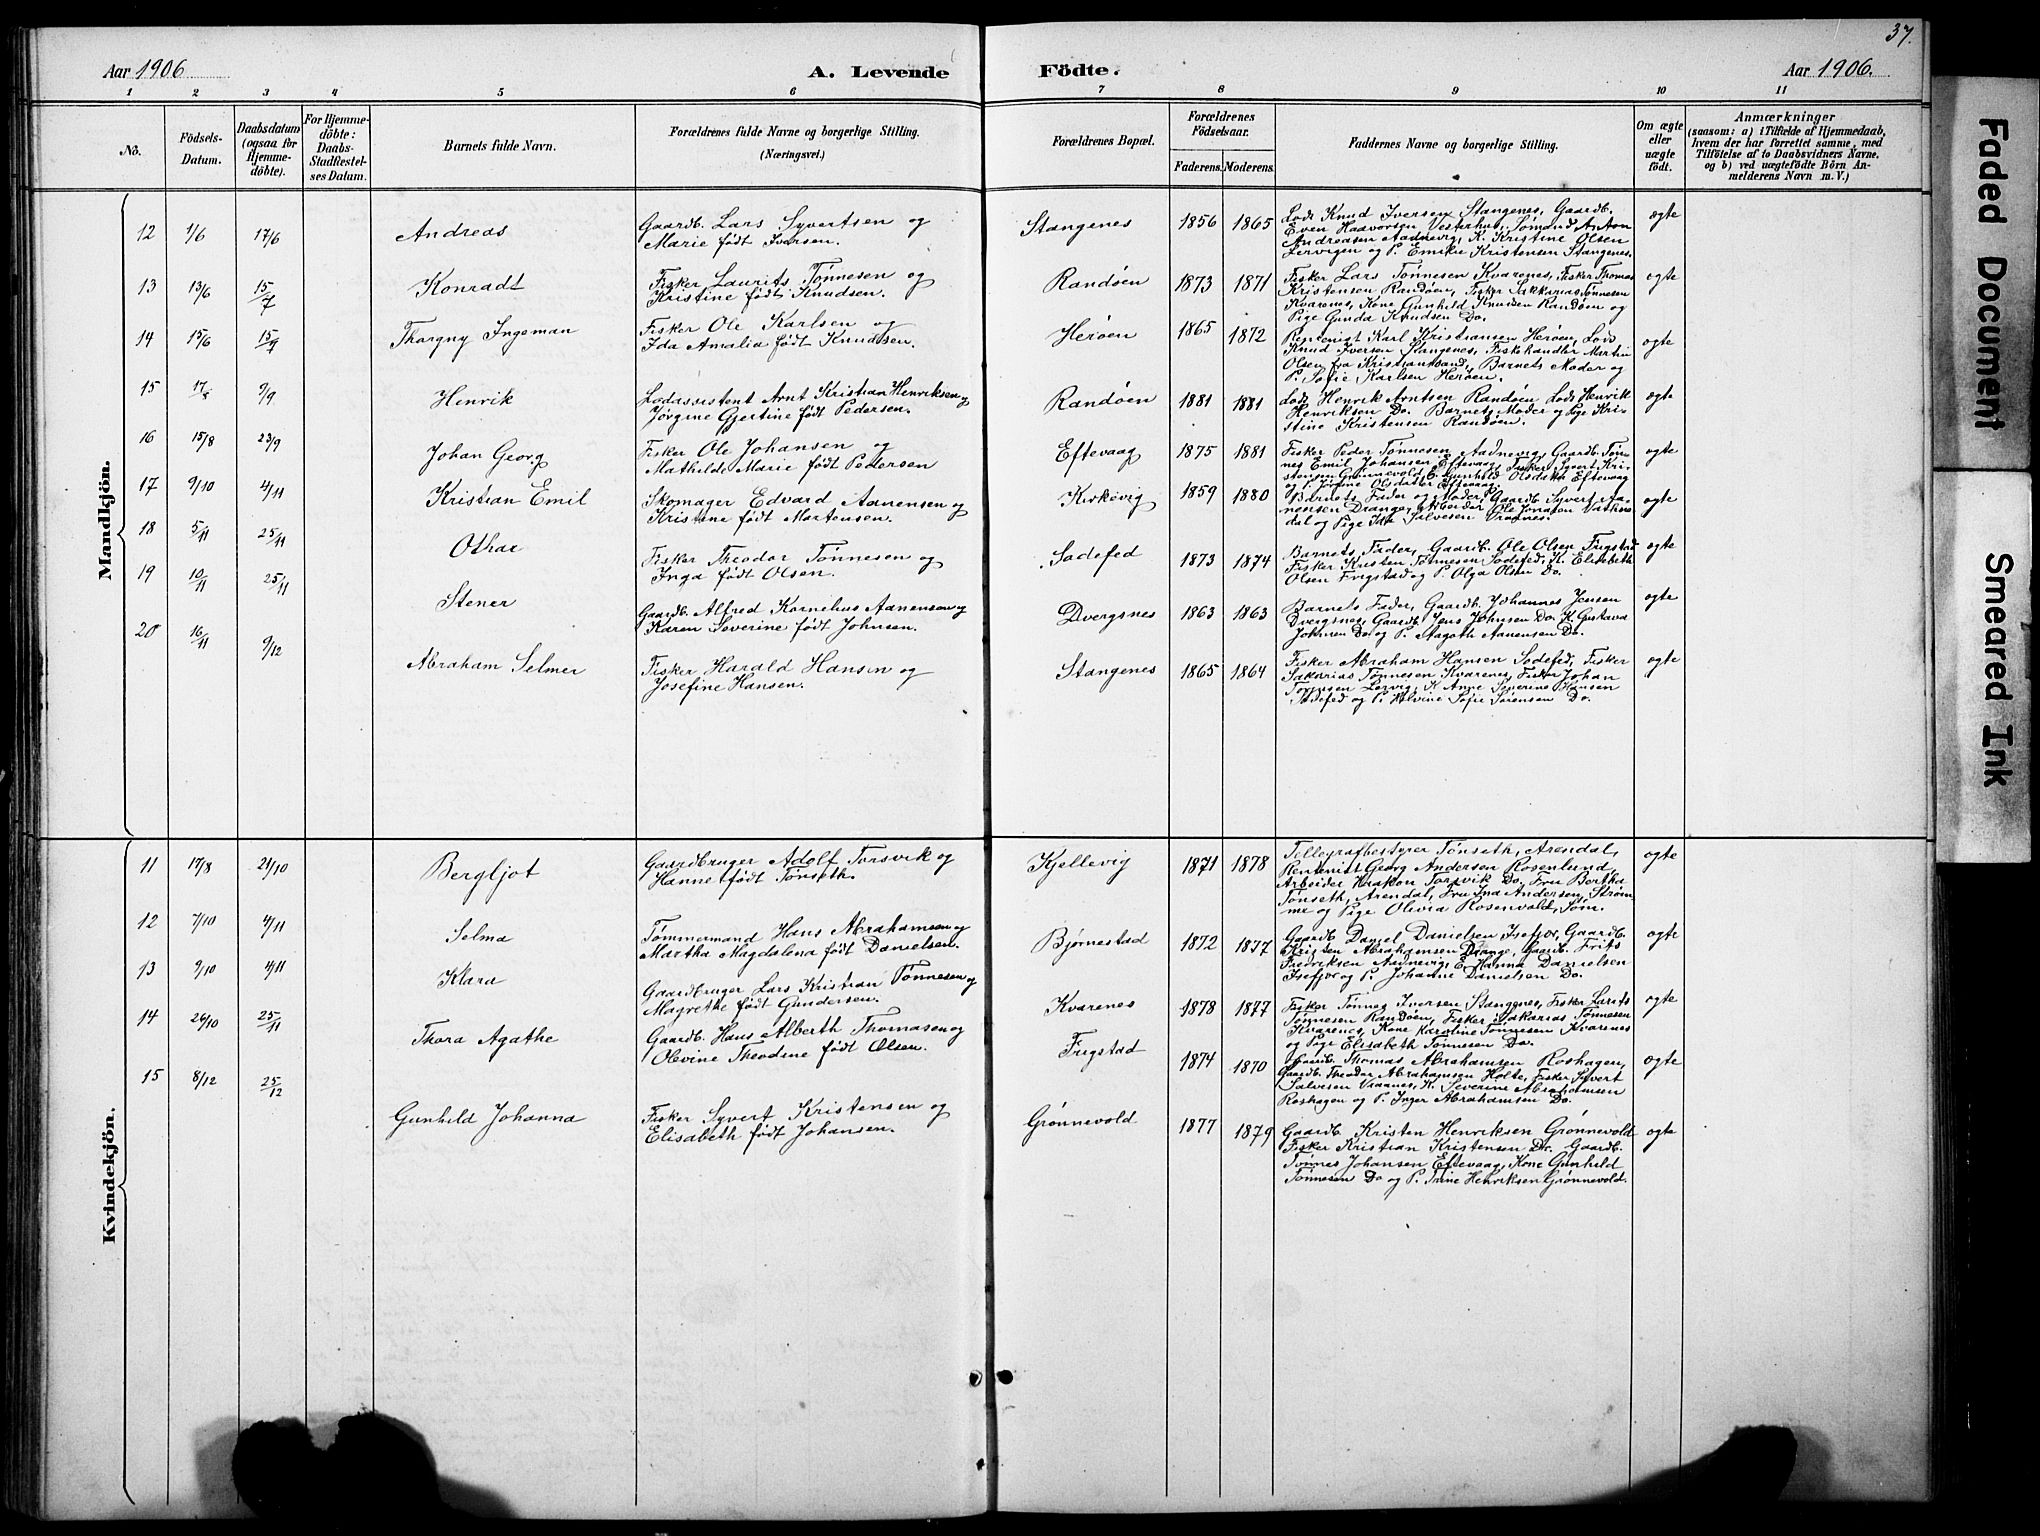 37.
Aar 1906
A. Levende
Födte.
Aar 1906.
1 2 3 4 5 6 7 8 9 10 11
No.
Födsels-
Datum.
Daabsdatum
(ogsaa for
Hjemme-
döbte).
For Hjemme-
döbte:
Daabs-
Stadfæstel-
ses Datum.
Barnets fulde Navn.
Forældrenes fulde Navne og borgerlige Stilling.
(Næringsvei.)
Forældrenes Bopæl.
Forældrenes
Födselsaar.
Faderens. Moderens.
Faddernes Navne og borgerlige Stilling.
Om ægte
eller
uægte
födt.
Anmærkninger
(saasom: a) i Tilfælde af Hjemmedaab,
hvem der har forrettet samme, med
Tilföielse af to Daabsvidners Navne,
og b) ved uægtefödte Börn An-
melderens Navn m. V.)
Mandkjön.
12 1/6 17/6 Andreas
Gaardb. Lars Syvertsen og
Marie født Iversen.
Stangenes 1856 1865
Lods Knud Iversen Stangenes, Gaardb.
Even Haavorsen Vesterhus, Sømand Anton
Andreasen Aadnevig, K. Kristine Olsen
Lervigen og P. Emilie Kristensen Stangenes.
ægte
13 13/6 15/7 Konradt
Fisker Laurits Tønnesen og
Kristine født Knudsen.
Randøen 1873 1871
Fisker Lars Tønnesen Kvarenes, Fisker Thomas
Kristensen Randøen, Fisker Sakkarias Tønnesen
Kvarenes, Kone Gunhild Knudsen Randøen og
Pige Gunda Knudsen Do.
ægte
14 15/6 15/7 Thorgny Ingeman
Fisker Ole Karlsen og
Ida Amalia født Knudsen.
Herøen 1865 1872
Rentenist Karl Kristiansen Herøen, Lods
Knud Iversen Stangenes, Fiskehandler Martin
Olsen fra Kristianssand, Barnets Moder og
P. Sofie Karlsen Herøen.
ægte
15 9/9 Henrik
Lodsassistent Arnt Kristian Henriksen og
Jørgine Gjertine født Pedersen.
Randøen 1881 1881
Lods Henrik Arntsen Randøen Lods Henrik
Henriksen Do. Barnets Moder og Pige Kri-
stine Kristensen Randøen.
ægte
16 15/8 23/9 Johan Georg
Fisker Ole Johansen og
Mathilde Marie født Pedersen
Eftevaag 1875 1881
Fisker Peder Tønnesen Aadnevig, Gaardb. Tøn-
nes Emil Johansen Eftevaag, Fisker Syvert Kri-
stensen Grønnevold, E. Gunhild Olsdatter Eftevaag
og P. Jørgine Olsdatter Eftevaag.
ægte
17 9/10 4/11 Kristian Emil
Skomager Edvard Aanensen og
Kristine født Martensen.
Kirkevig 1859 1880
Barnets Fader og Moder, Gaardb. Syvert Aa-
nensen Drange, Arbeider Ole Jonason
dal og Pige Ida Salvesen
ægte
18 5/11 25/11 Othar
Fisker Theodor Tønnesen og
Inga født Olsen.
Sodefed 1873 1874
Barnets Fader, Gaardb. Ole Olsen Frigstad
Fisker Kristen Tønnesen Sodefed, K. Elisabeth
Olsen Frigstad og P. Olga Olsen Do.
ægte
19 10/11 25/11 Stener
Gaardb. Alfred Kornelius Aanensen og
Karen Severine født Johnsen.
Dvergsnes 1863 1863
Barnets Fader, Gaardb. Johannes Jensen
Dvergsnes, Gaardb. Jens Johnsen Do. K. Gustava
Johnsen Do. og P. Aagoth Aanensen Do.
ægte
20 16/11 9/12 Abraham Selmer
Fisker Harald Hansen og
Josefine Hansen.
Stangenes 1865 1864
Fisker Abraham Hansen Sodefed, Fisker
Sakarias Tønnesen Kvarenes, Fisker Johan
Tønnesen Lervig, K. Anne Severine Hansen
Sodefed og P. Halvine Sofie Sørensen Do.
ægte
Kvindekjön.
11 17/8 21/10 Bergljot
Gaardbruger Adolf Torsvik og
Hanne født Tønseth.
Kjellevig 1871 1878
Tellegrafbestyrer Tønseth, Arendal,
Rentenist Georg Andersen Rosenlund,
Arbeider Haakon Torsvik Do, Fru Bertha
Tønseth, Arendal, Fru Ina Andersen, Strøm-
me og Pige Olivia Rosenvold, Søm.
ægte
12 7/10 4/11 Selma
Tømmermand Hans Abrahamsen og
Martha Magdalena født Danielsen.
Bjørnestad 1872 1877
Gaardb. Daniel Danielsen Isefjær, Gaardb.
Kristen Abrahamsen Drange, Gaardb. Frits
Fredriksen Aadnevig, E. Hanna Danielsen
Isefjær og P. Johanne Danielsen Do.
ægte
13 9/10 4/11 Klara
Gaardbruger Lars Kristian Tønnesen og
Magrethe født Gundersen.
Kvarenes 1878 1877
Fisker Tønnes Iversen Stangenes, Fisker Larits
Tønnesen Randøen, Fisker Sakarias Tønnesen
Kvarenes, Kone Karoline Tønnesen Kvarenes
og Pige Elisabeth Tønnesen Do.
ægte
14 26/10 25/11 Thora Agathe
Gaardb. Hans Alberth Thomasen og
Olevine Theodine født Olsen.
Frigstad 1874 1870
Gaardb. Thomas Abrahamsen Roshagen,
Gaardb. Theodor Abrahamsen Holte, Fisker Syvert
Salvesen Vraanes, K. Severine Abrahamsen
Roshagen og P. Inger Abrahamsen Do.
ægte
15 8/12 25/12 Gunhild Johanna
Fisker Syvert Kristensen og
Elisabeth født Johansen.
Grønnevold 1877 1879
Gaardb. Kristen Henriksen Grønnevold
Fisker Kristian Kristensen Do. Gaardb.
Tønnes Johansen Eftevaag, Kone Gunhild
Tønnesen Do og P. Trine Henriksen Grønnevold.
ægte
Faded Document
Smeared Ink